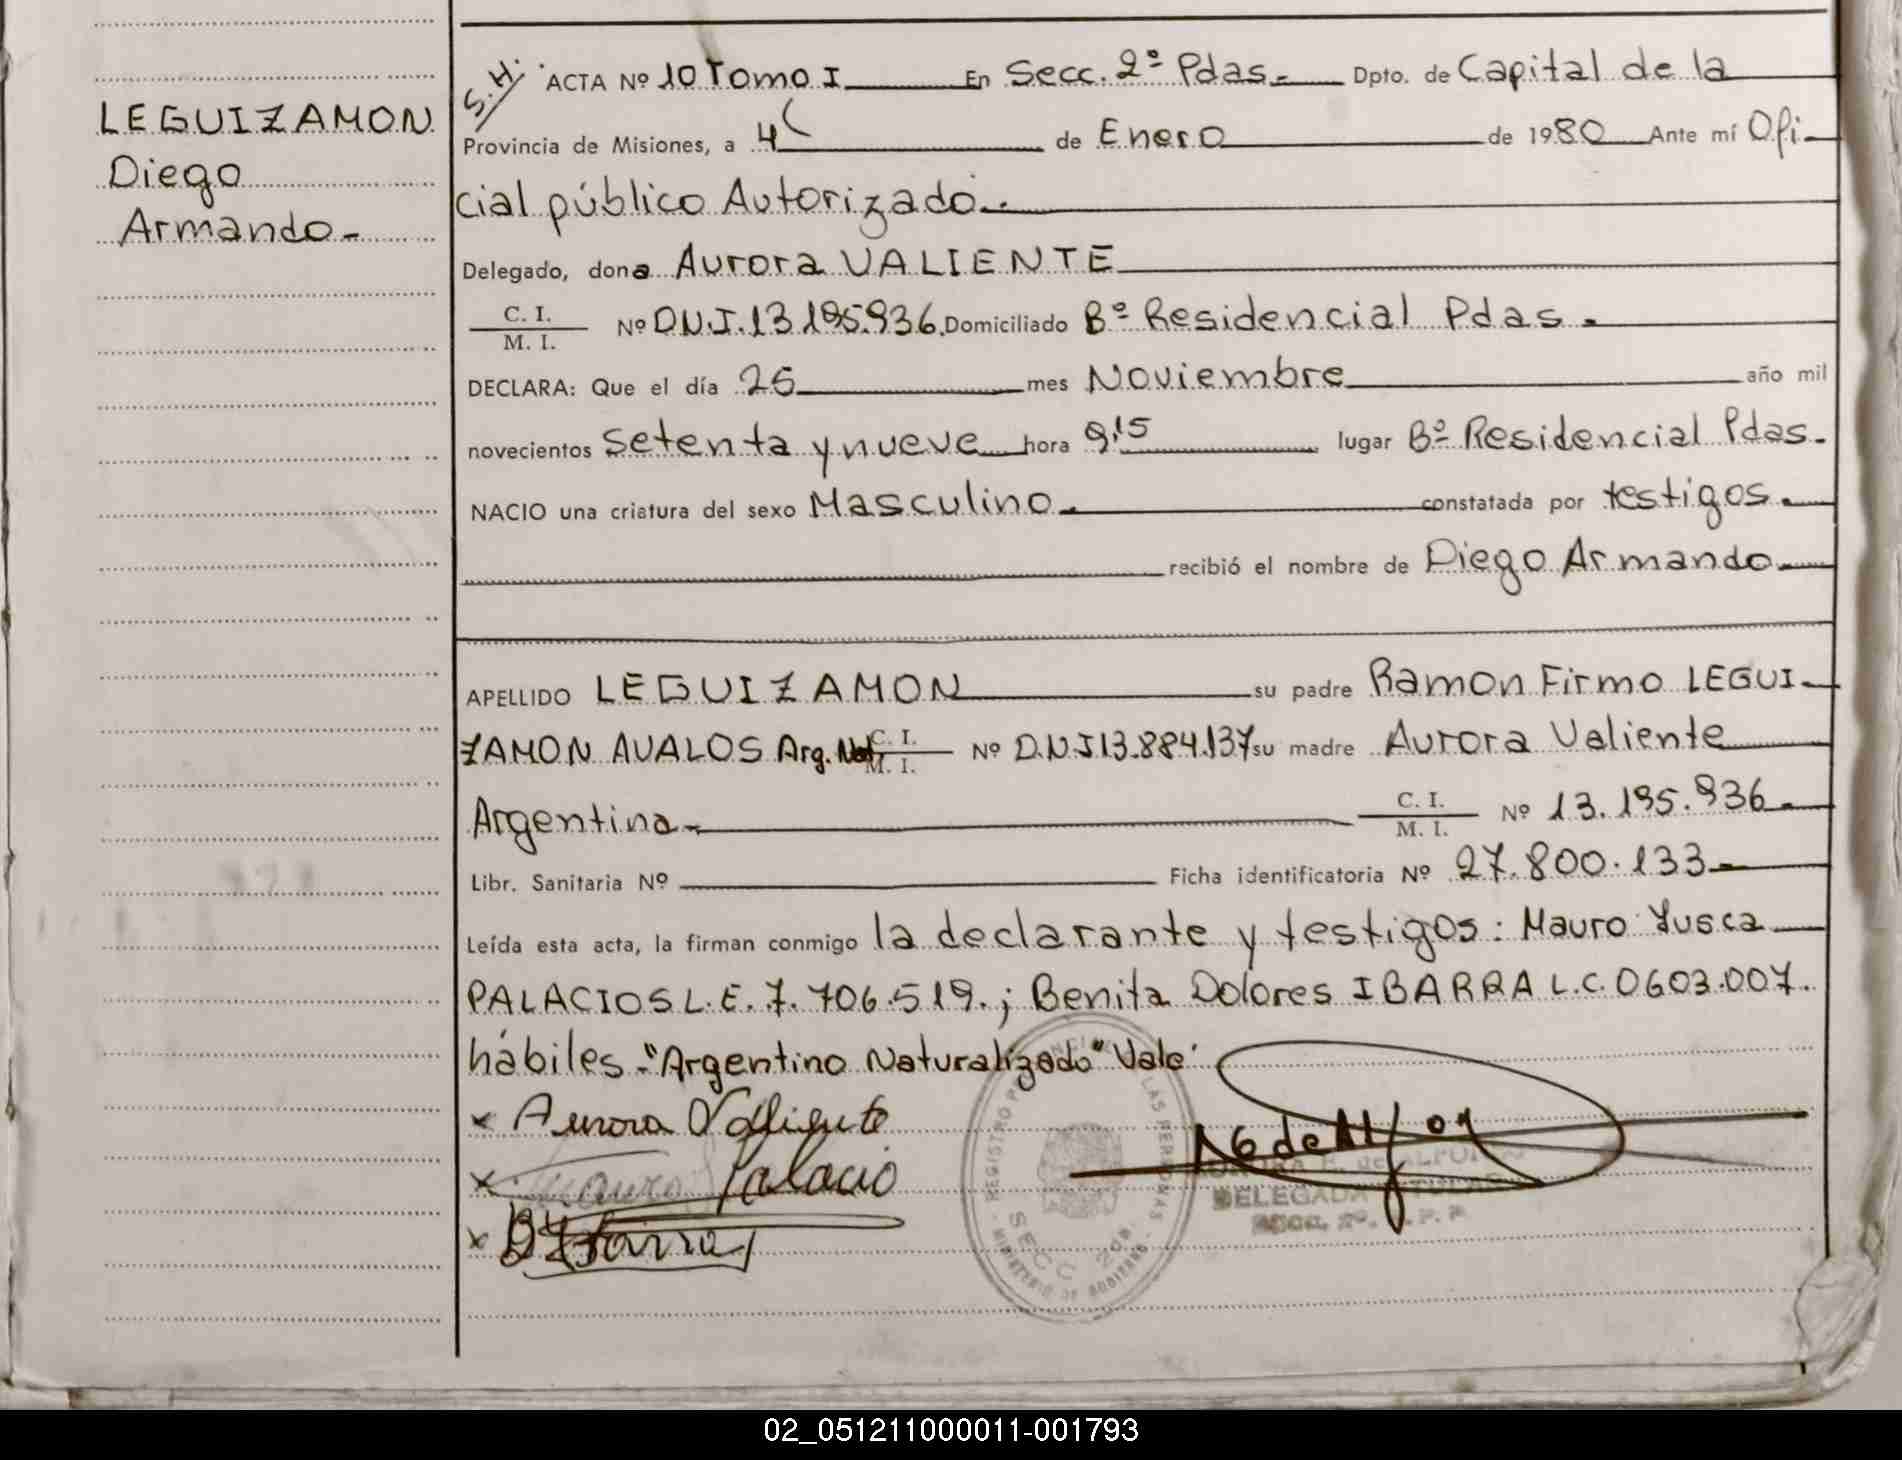 LEGUIZAMON
Diego
Armando-
S.H. ACTA Nº 10 Tomo I En Secc. 2ª Pdas.- Dpto. de Capital de la
Provincia de Misiones, a 4 de Enero de 1980 Ante mí Ofi-
cial público Autorizado.-
Delegado, dona Aurora VALIENTE
C. I.
M. I. Nº D.N.I. 13.195.936. Domiciliado Bº Residencial Pdas.-
DECLARA: Que el día 25 mes Noviembre año mil
novecientos setenta y nueve hora 9,15 lugar Bº Residencial Pdas.-
NACIO una criatura del sexo Masculino.- constatada por testigos.-
recibió el nombre de Diego Armando.-
APELLIDO LEGUIZAMON su padre Ramon Firmo LEGUI-
ZAMON AVALOS Arg. Nat. C. I. M. I. Nº D.N.I 13.884.137 su madre Aurora Valiente
Argentina.- C. I. M. I. Nº 13.195.936.-
Libr. Sanitaria Nº Ficha identificatoria Nº 27.800.133-
Leída esta acta, la firman conmigo la declarante y testigos: Mauro Yusca
PALACIOS L.E. 7.706.519.; Benita Dolores IBARRA L.C. 0603.007.
hábiles.- "Argentino Naturalizado" Vale
x Aurora Valiente
x Mauro Palacio
x B Ibarra
REGISTRO PROVINCIAL DE LAS PERSONAS
SECC 2da.
MINISTERIO DE GOBIERNO
DELEGADA TITULAR
02_051211000011-001793